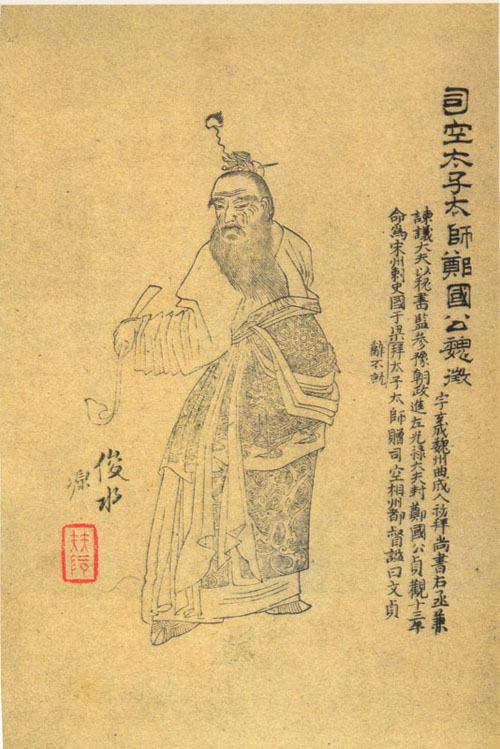 司空太子太師鄭國公魏徵
字玄成魏州曲成人初拜尚書右丞兼
諫議大夫以秘書監參豫朝政進左光祿大夫封鄭國公貞觀十三年
命爲宋州刺史國于梁拜太子太師贈司空相州都督諡曰文貞
辭不就
俊水
源